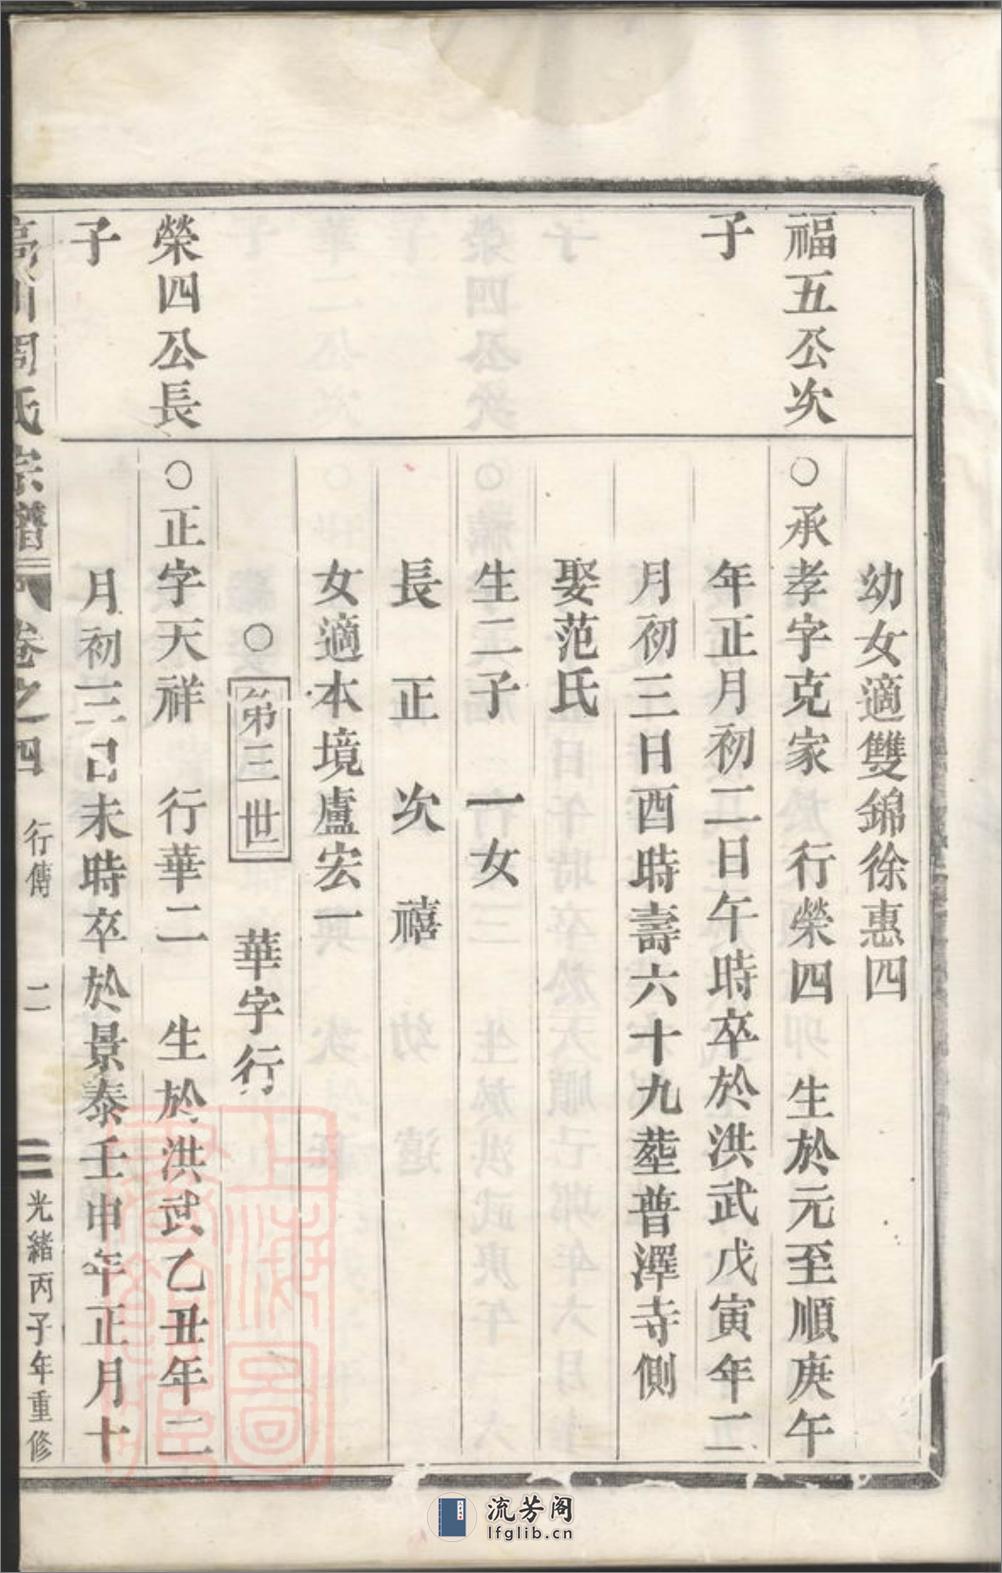 幼女適雙錦徐惠四
福五公次 ○承孝字克家 行榮四 生於元至順庚午
子 年正月初二日午時卒於洪武戊寅年二
月初三日酉時壽六十九塟普澤寺側
娶范氏
生二子 一女
長 正 次 禧
女適本境盧宏一
○第三世 華字行
榮四公長 ○正字天祥 行華二 生於洪武乙丑年二
子 月初三日未時卒於景泰壬申年正月十
周氏宗譜 卷之四 行傳 二 光緒丙子年重修
流芳阁
lfglib.cn